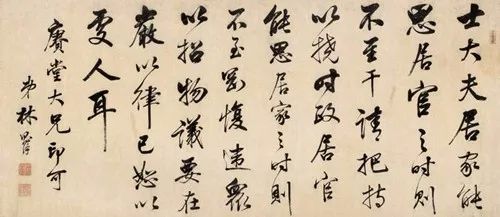 士大夫居家能
思居官之時則
不至干請把持
以撓時政居官
能思居家之時則
不至剛愎違衆
以招物議要在
嚴以律己恕以
處人耳
賡堂大兄印可
弟林